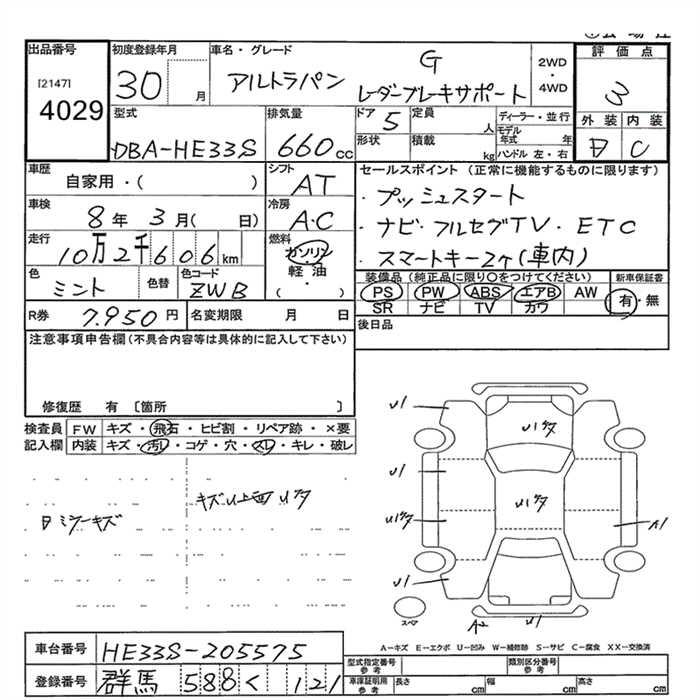 出品番号
[2147]
4029
初度登録年月
30 月
車名・グレード
アルトラパン G
レーダーブレーキサポート
2WD
・
4WD
評価点
3
外装 内装
C
型式
DBA-HE33S
排気量
660 cc
ドア
5
定員
人
形状
積載
kg
ディーラー・並行
モデル年式 年
ハンドル 左・右
車歴
自家用・( )
シフト
AT
車検
8年 3月( 日)
冷房
A・C
走行
10万2千606 km
燃料
ガソリン
軽・油
( )
色
ミント
色替
色コード
ZWB
R券
7.950 円
名変期限 月 日
セールスポイント (正常に機能するものに限ります)
・プッシュスタート
・ナビ・フルセグTV・ETC
・スマートキー2ケ(車内)
装備品(純正品に限り○をつけてください)
新車保証書
PS PW ABS エアB AW
SR ナビ TV カワ
有・無
後日品
注意事項申告欄(不具合内容等は具体的に記入して下さい)
修復歴 有 〔箇所 〕
検査員
記入欄
FW キズ・飛石・ヒビ割・リペア跡・×要
内装 キズ・汚レ・コゲ・穴・スレ・キレ・破レ
ミラーキズ
U1
U1
U1
A1
A2
U1
スペア
A－キズ E－エクボ U－凹み W－補修跡 S－サビ C－腐食 XX－交換済
車台番号
HE33S-205575
登録番号
群馬 588 く 121
型式指定番号
参考
類別区分番号
参考
車庫証明用
参考
長さ cm
幅 cm
高さ cm